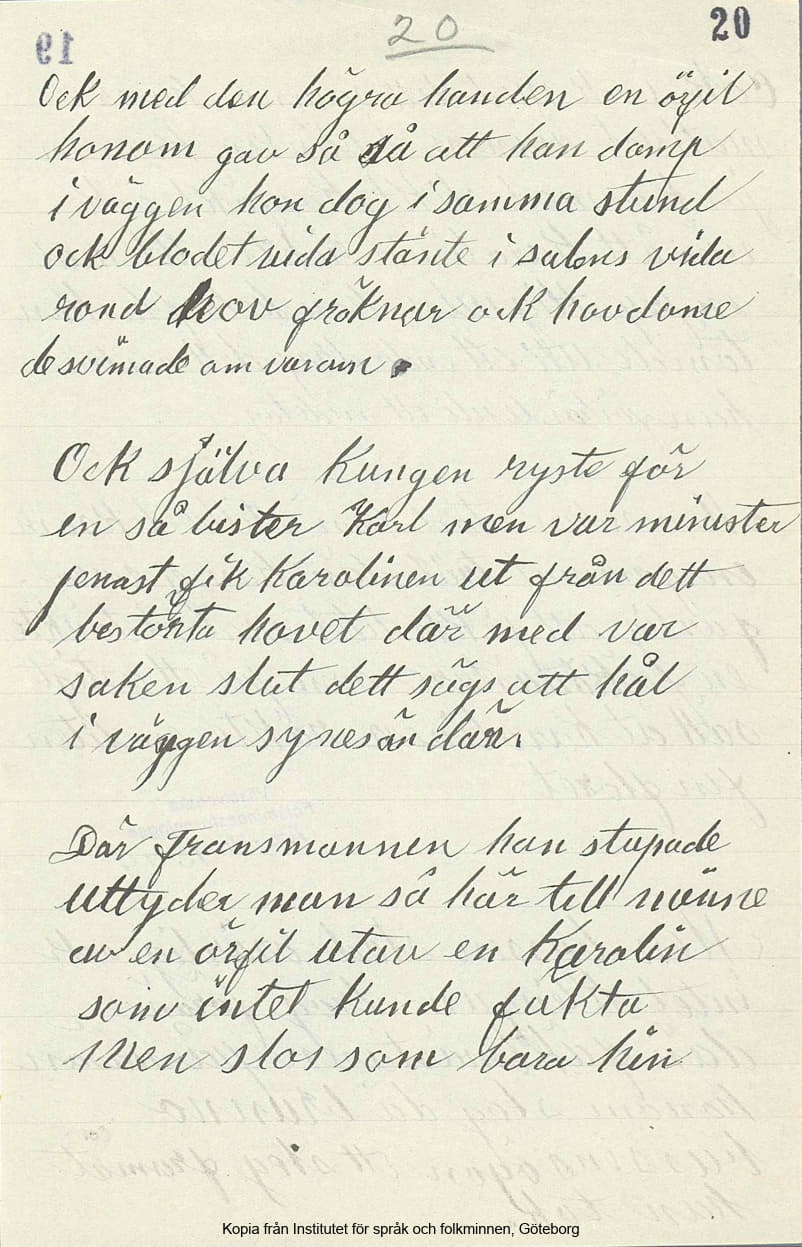 19
20
20
Ock med den högra handen en örfil
honom gav så så att han damp
i väggen han dog i samma stund
ock blodet vida stänte i salens vida
rond hov fröknar ock hovdame
de svimade om varann.
Ock själva Kungen ryste för
en så bister Karl men var minister
jenast fik Karolinen ut från dett
bestörta hovet där med var
saken slut dett sägs att hål
i väggen synes än där.
Där fransmannen han stupade
uttyder man så här till minne
av en örfil utav en Karolin
som intet Kunde fäkta
Men slos som bara hin
Kopia från Institutet för språk och folkminnen, Göteborg